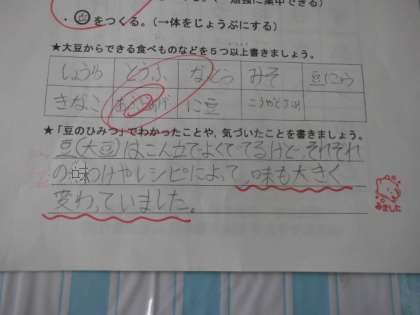 勉強に集中できる)
・をつくる。(一体をじょうぶにする)
★大豆からできる食べものなどを5つ以上書きましょう。
しょうゆ とうふ なっとう みそ 豆にゅう
きなこ あぶらあげ に豆 こうやどうふ
★「豆のひみつ」でわかったことや、気づいたことを書きましょう。
豆(大豆)は、こん立てよくでてるけど、それぞれ
の味つけやレシピによって、味も大きく
変わっていました。
みました